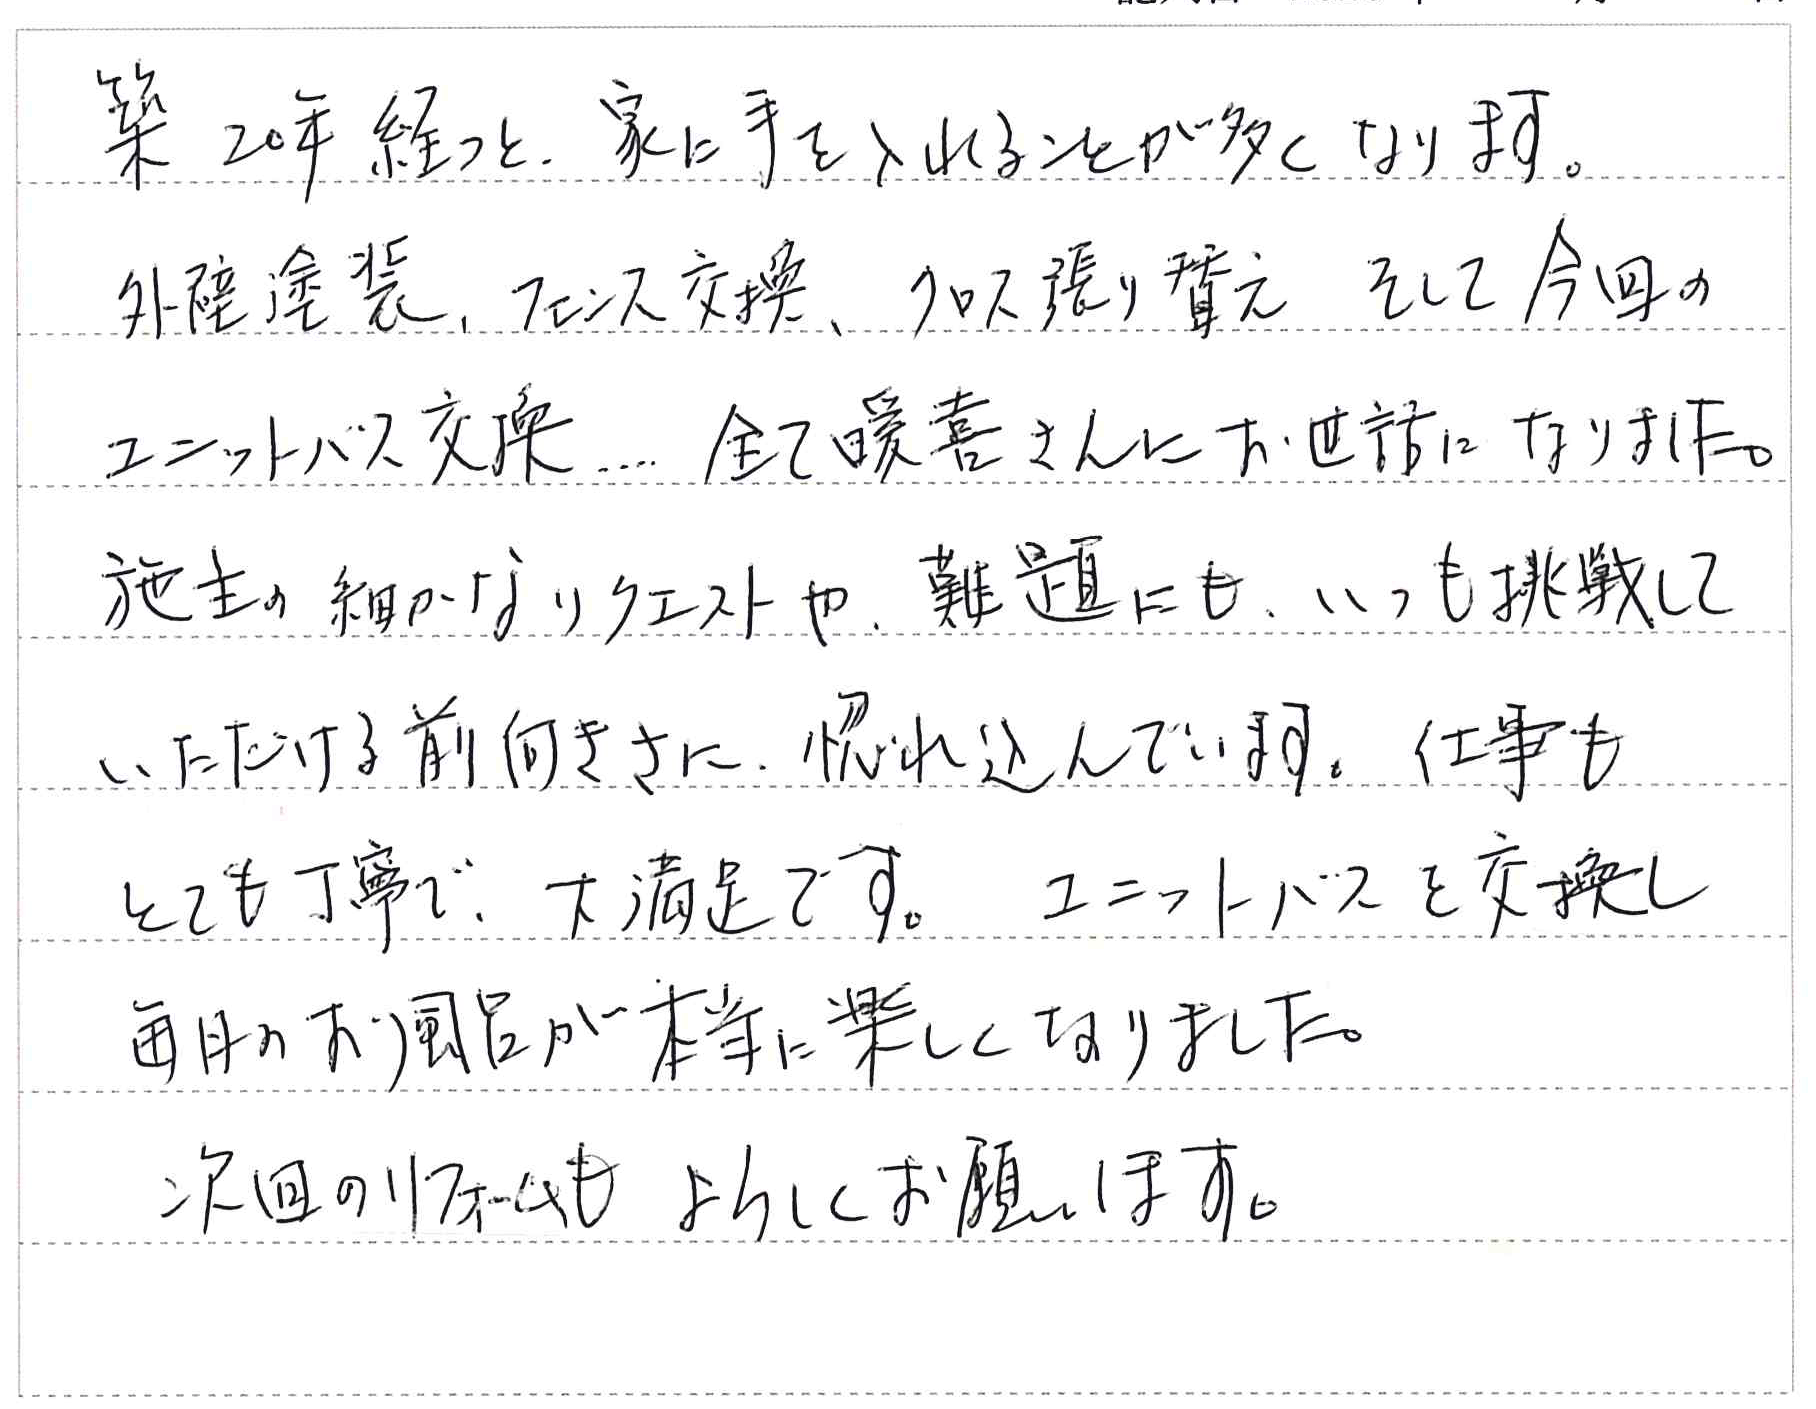 築20年経つと、家に手を入れることが多くなります。
外壁塗装、フェンス交換、クロス張り替え そして今回の
ユニットバス交換.... 全て暖喜さんにお世話になりました。
施主の細かなリクエストや、難題にも、いつも挑戦して
いただける前向きさに、惚れ込んでいます。仕事も
とても丁寧で、大満足です。 ユニットバスを交換し
毎日のお風呂が本当に楽しくなりました。
次回のリフォームも よろしくお願いします。